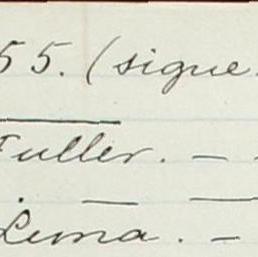 55. (sigue
Fuller. —
Lema. —